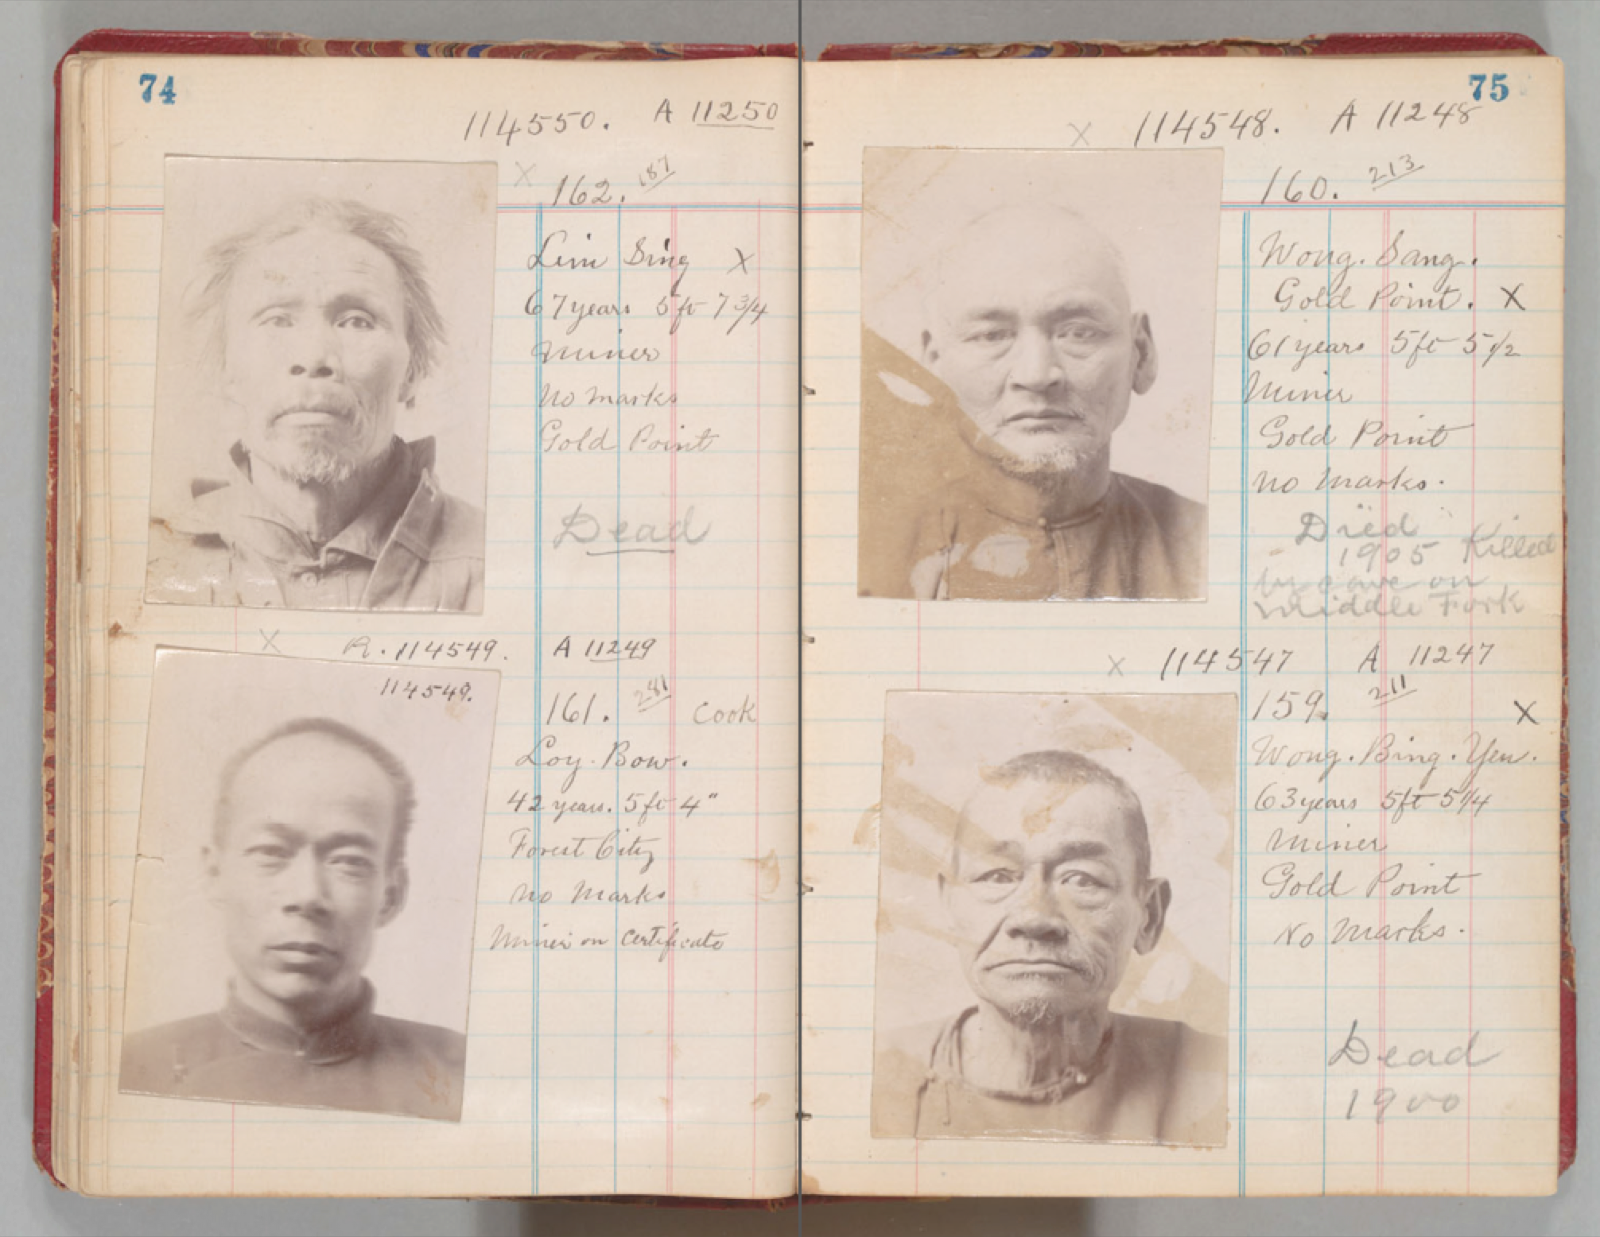 74
114550. A 11250
X
162. 187
Lim Sing X
67 years 5 ft 7 3/4
Miner
No marks
Gold Point
Dead
X R. 114549. A 11249
114549.
161. 281 Cook
Loy. Bow.
42 years. 5 ft 4"
Forest City
No Marks
Miner on Certificate
75
X 114548. A 11248
160. 213
Wong. Sang.
Gold Point. X
61 years 5 ft 5 1/2
Miner
Gold Point
No Marks.
Died
1905 Killed
by cave on
Middle Fork
X 114547 A 11247
159. 211 X
Wong. Bing. Yen.
63 years 5 ft 5 1/4
Miner
Gold Point
No Marks.
Dead
1900